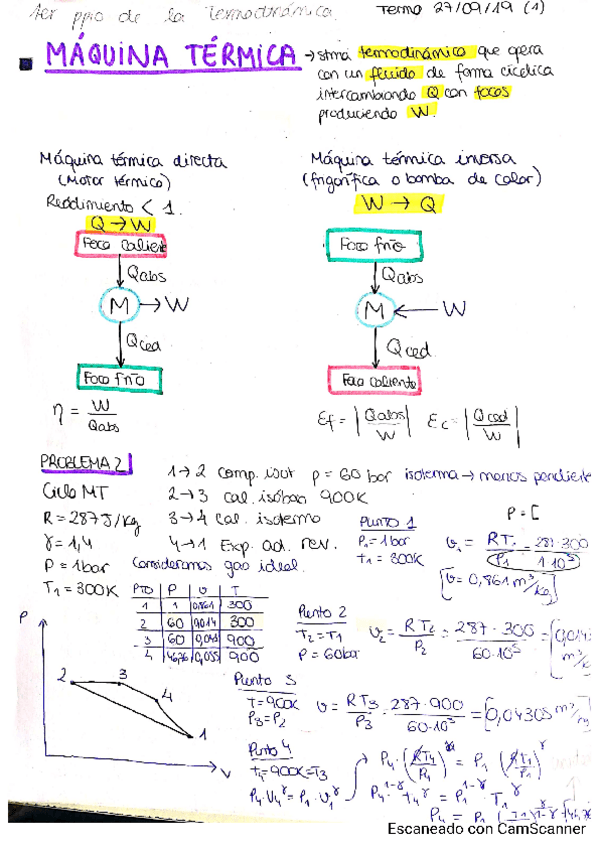 1er ppio de la Termodinámica.
Termo 27/09/19 (1)
MÁQUINA TÉRMICA → stma termodinámico que opera
con un fluido de forma cíclica
intercambiando Q con focos
produciendo W.
Máquina térmica directa
(Motor térmico)
Rendimiento < 1.
Q → W
Foco caliente
Qabs
M → W
Qced
Foco frío
η = W / Qabs
Máquina térmica inversa
(frigorífica o bomba de calor)
W → Q
Foco frío
Qabs
M ← W
Qced
Foco caliente
Ef = |Qabs / W| Ec = |Qced / W|
PROBLEMA 2
Ciclo MT
R = 287 J/kg
γ = 1,4
P = 1bar
T1 = 300K
1→2 comp. isot p = 60 bar isoterma → menos pendiente
2→3 cal. isóbara 900K
3→4 cal. isotermo
4→1 Exp. ad. rev.
Consideramos gas ideal.
P = [
PTO P v T
1 1 0,861 300
2 60 0,014 300
3 60 0,043 900
4 46,76 0,055 900
Punto 1
P1 = 1bar
T1 = 300K
v1 = RT1 / P1 = 287·300 / 1·10⁵
[v = 0,861 m³/kg]
Punto 2
T2 = T1
P = 60bar
v2 = RT2 / P2 = 287·300 / 60·10⁵ = [0,014 m³/
Punto 3
T = 900K
P3 = P2
v = RT3 / P3 = 287·900 / 60·10⁵ = [0,04305 m³/kg
Punto 4
T4 = 900K = T3
P4·V4^γ = P1·V1^γ
P4·(RT4/P4)^γ = P1(RT1/P1)^γ
P4^1-γ · T4^γ = P1^1-γ · T1^γ
P
V
2
3
4
1
Escaneado con CamScanner